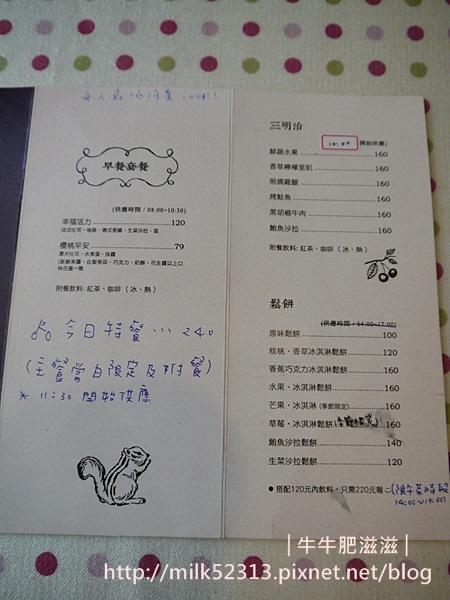 每人最低消費100元!
早餐套餐
(供應時間 / 08:00~10:30)
幸福活力 120
櫻桃早安 79
附餐飲料: 紅茶、咖啡 (冰、熱)
今日特餐…240
(主餐當日限定及附餐)
* 11:30 開始供應
三明治
開始供應)
鮮蔬水果 160
香草檸檬里肌 160
照燒雞腿 160
烤鮭魚 160
黑胡椒牛肉 160
鮪魚沙拉 160
附餐飲料: 紅茶、咖啡 (冰、熱)
鬆餅
(供應時間 / 14:00~17:00)
原味鬆餅 100
核桃・香草冰淇淋鬆餅 120
香蕉巧克力冰淇淋鬆餅 160
水果・冰淇淋鬆餅 160
芒果・冰淇淋 (季節限定) 160
草莓・冰淇淋鬆餅 (季節限定) 160
鮪魚沙拉鬆餅 140
生菜沙拉鬆餅 120
● 搭配120元內飲料,只需220元喔~ (限午茶時段
14:00~17:00)
|牛牛肥滋滋|
http://milk52313.pixnet.net/blog